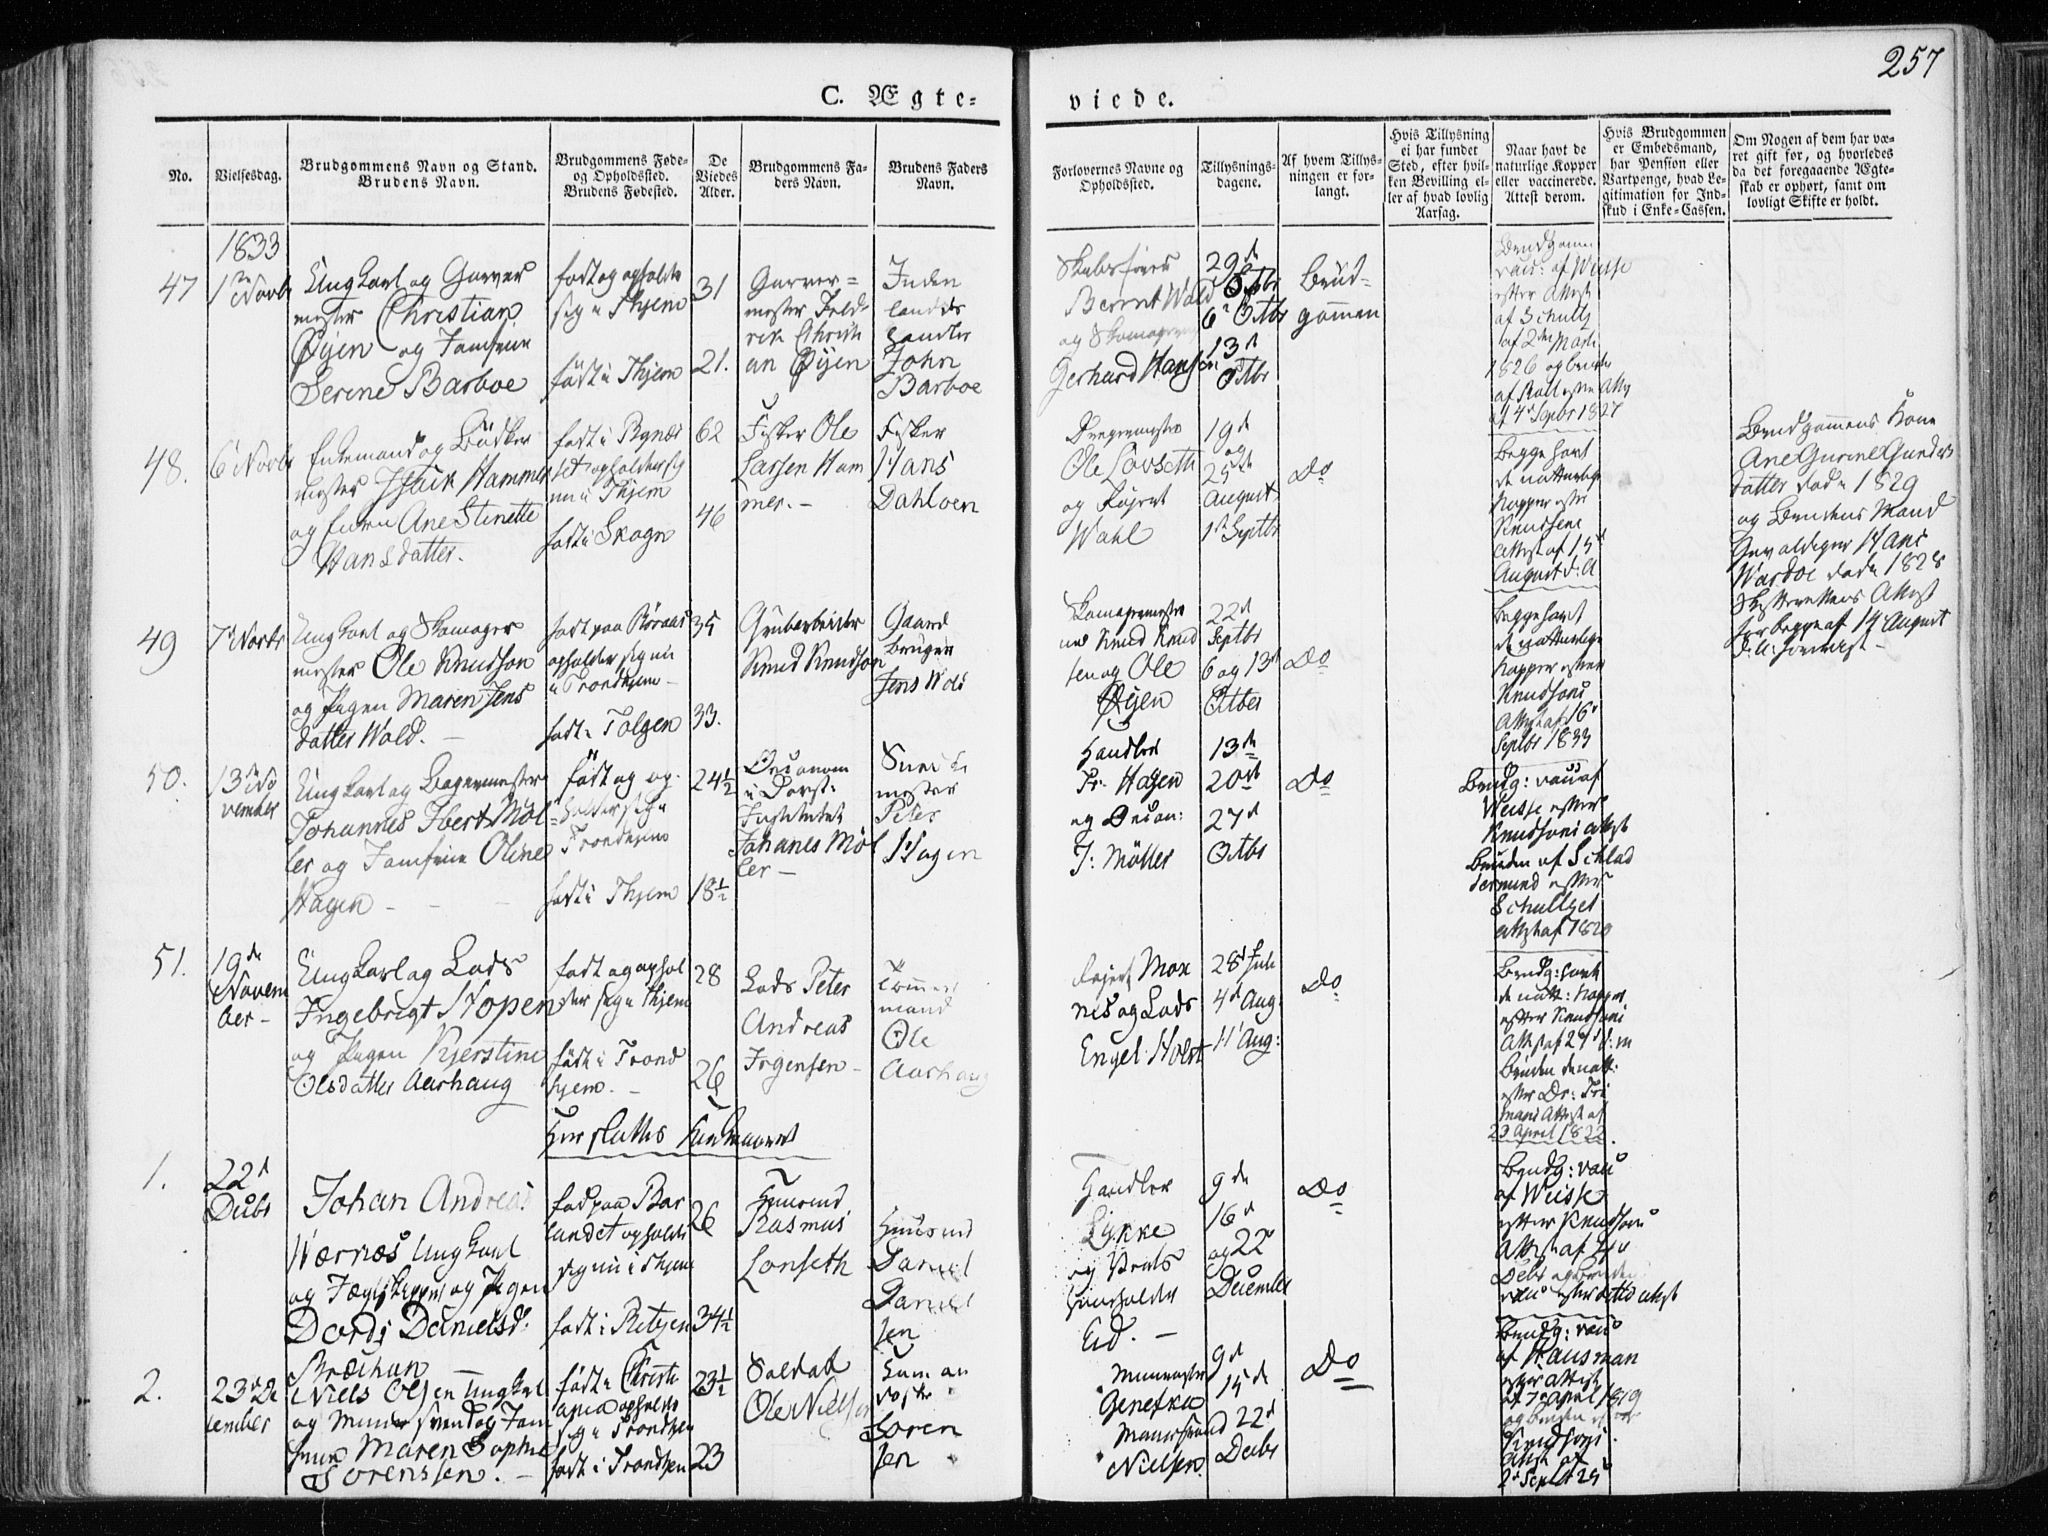 257
C. Ægte=
viede.
No.
Vielsesdag.
Brudgommens Navn og Stand.
Brudens Navn.
Brudgommens Føde-
og Opholdssted.
Brudens Fødested.
De
Viedes
Alder.
Brudgommens Fa-
ders Navn.
Brudens Faders
Navn.
Forlovernes Navne og
Opholdssted.
Tillysnings-
dagene.
Af hvem Tillys-
ningen er for-
langt.
Hvis Tillysning
ei har fundet
Sted, efter hvil-
ken Bevilling el-
ler af hvad lovlig
Aarsag.
Naar havt de
naturlige Kopper
eller vaccinerede.
Attest derom.
Hvis Brudgommen
er Embedsmand,
har Pension eller
Vartpenge, hvad Le-
gitimation for Ind-
skud i Enke-Cassen.
Om Nogen af dem har væ-
ret gift før, og hvorledes
da det foregaaende Ægte-
skab er ophørt, samt om
lovligt Skifte er holdt.
1833
47
1 Novbr
Ungkarl og Garver
mester Christian
Øyen og Jomfrue
Serine Barboe
født og opholder
sig i Thjem
født i Thjem
31
21.
Garver=
mester Fred
rik Christi
an Øyen
Inden
lands
handler
John
Barboe
Bernt Wold
og Skomagerm
Gerhard Hansen
29d
Sptbr
6 Octbr
13d
Octbr
Brud-
gommen
Brudgomm
vacc: af Weisse
efter Attest
af Schultz
af 2den Marts
1826 og Bruden
af 4 Septbr 1827
48.
6 Novbr
Enkemand og Bødker
mester Isak Hammer
og Enken Ane Stinette
Hansdatter.
født i Bynæs
set opholder sig
nu i Thjem
født i Skogn
62
46
Fisker Ole
Larsen Ham
mer. -
Fisker
Hans
Dahloen
Ole Lovseth
og
Wahl
19d
og
25de
August
1te Septbr
Do
Begge havt
de naturlige
Kopper efter
Knudsens
Attest af 15d
August d: A
Brudgommens Kone
Ane Gurine Gunders
datter død i 1829
og Brudens Mand
Gevaldiger Hans
Wardoe død i 1828
Skifterettens Attest
for begge af 14 August
d: A: forevist -
49
7d Novbr
Ungkarl og Skomager
mester Ole Knudson
og Pigen Maren Jens
datter Wold. -
født paa Røraas
opholder sig nu
i Trondhjem -
født i Tolgen
35
33.
Grubearbeider
Knud Knudson
Gaard
bruger
Jens Wold
Skomagermester
Knud Knud
sen og Ole
Øyen
22d
Septbr
6 og 13d
Octber
Do
Begge havt
de naturlige
Kopper efter
Knudsons
Attest af 16d
Septbr 1833
50.
13d No
vember
Ungkarl og Bagermester
Johannes Ibert Møl
ler og Jomfrue Oline
Hagen - - -
født og op-
holder sig i
Trondhjem
født i Thjem
24½
18½
Øconom
i Dorst:
Institutet
Johanes Møl
ler -
mester
Peter
Hagen
Handler
Fr: Hagen
og Øcon:
J: Møller
13de
20de
27d
Octbr
Do
Brudg: vacc af
Weisse efter
Knudsons Attest
Bruden af Schlad
termund efter
Schultzes
Attest af 1829
51.
19de
Novem
ber -
Ungkarl og Lods
Ingebrigt Hopen
og Pigen Kjerstine
Olsdatter Aarhaug
født og ophol
der sig i Thjem
født i Trond
hjem. -
28
26
Lods Peter
Andreas
Jrgensen -
Tømmer
mand
Ole
Aarhaug
Mox
nes og Lods
Engel: Holst
28d Juli
4d Aug:
11 Aug:
Do
Brudg: havt
de natt: Kopper
efter Knudsons
Attest af 27d d: m
Bruden de natt:
efter Dr:
Attest af
23 April 1822.
Her slutter Kirkeaaret
1.
22d
Decbr
Johan Andreas
Wærnæs Ungkarl
og Pigen
Dordi Danielsd:
Bræchan -
født paa Bar
landet opholder
sig nu i Thjem
født i Ritzen
26
34½
Huusmd
Rasmus
Lonseth
Huusmd
Daniel
Daniel
sen
Handler
Lykke
og
Eid. -
9de
16d
og 22d
December
Do
Brudg: vacc
af Weisse
efter Knudsons
Attest af
Decbr og Bruden
efter ditto Attest
2.
23d De
cember
Niels Olsen Ungkarl
og Muursvend og Jom
frue Maren Sophie
Sørenssen. -
født i Christi
ania opholder
sig i Trondhjem
født i Trondhjem
23½
23
Soldat
Ole Nielsen
Søren
sen
Muurmester
Genetka
Muursvend
Nielsen
9d
15d
22d
Decbr
Do
Brudg: vacc
af Hausman
efter Attest
af 7 April 1819
og Bruden efter
Knudsons
Attest af
2d Septbr 25